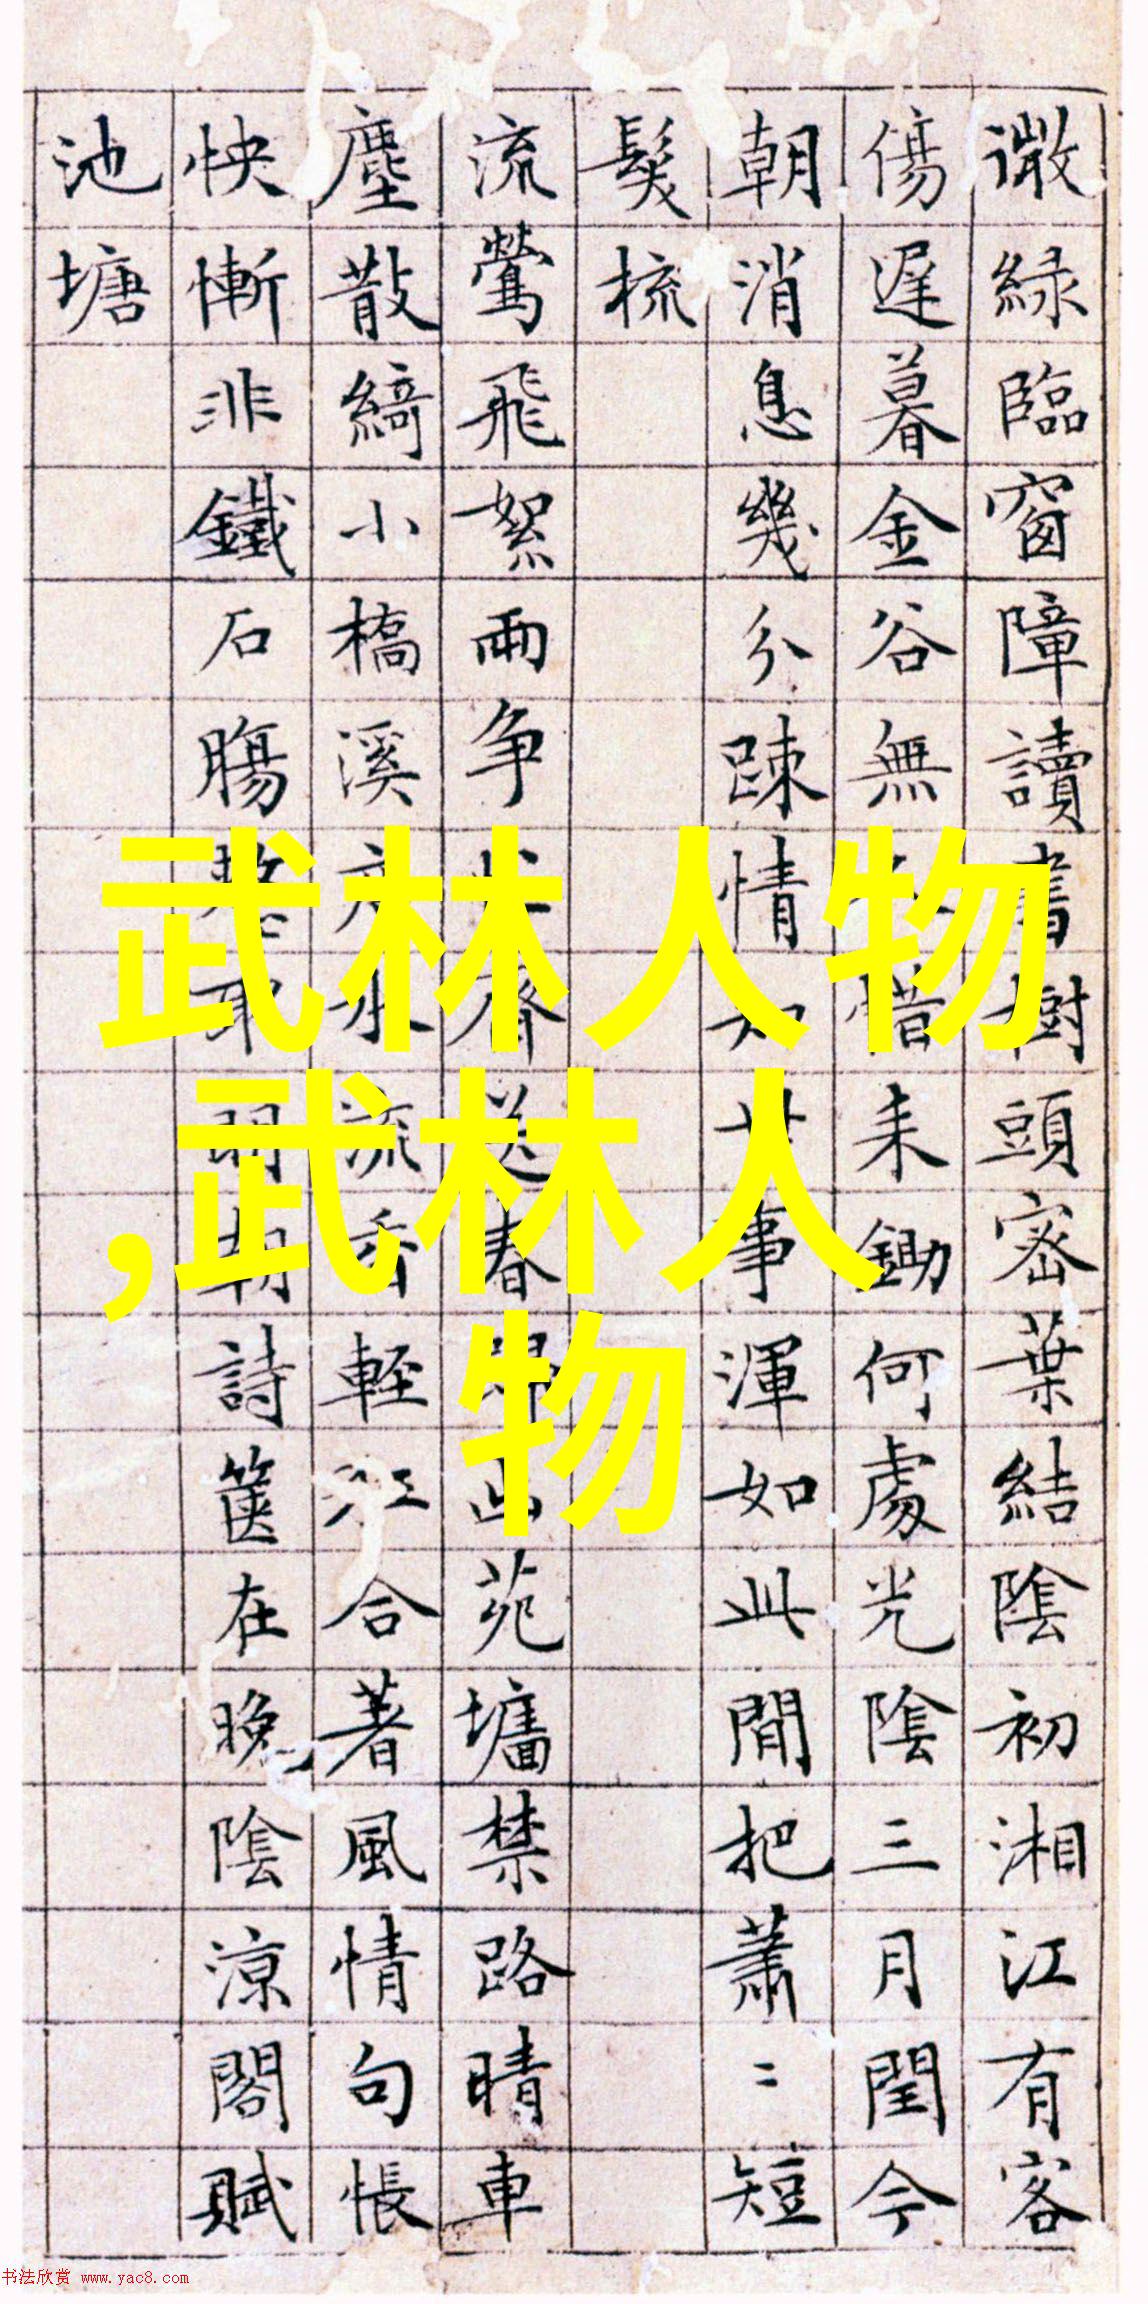 微綠臨窗障讀書樹頭密葉結陰初湘江有客
傷遲暮金谷無惜耒鋤何處光陰三月閏今
朝消息幾分踈情如世事渾如此間把蕭〻短
髮梳
流鶯飛絮兩爭齊送春苑墻禁路晴車
塵散綺小橋溪水流香輕江合著風情句悵
怏慚非鐵石腸取明朝詩篋在晚陰涼閣賦
池塘
武林人物
,武林人
物
书法欣赏 www.yac8.com